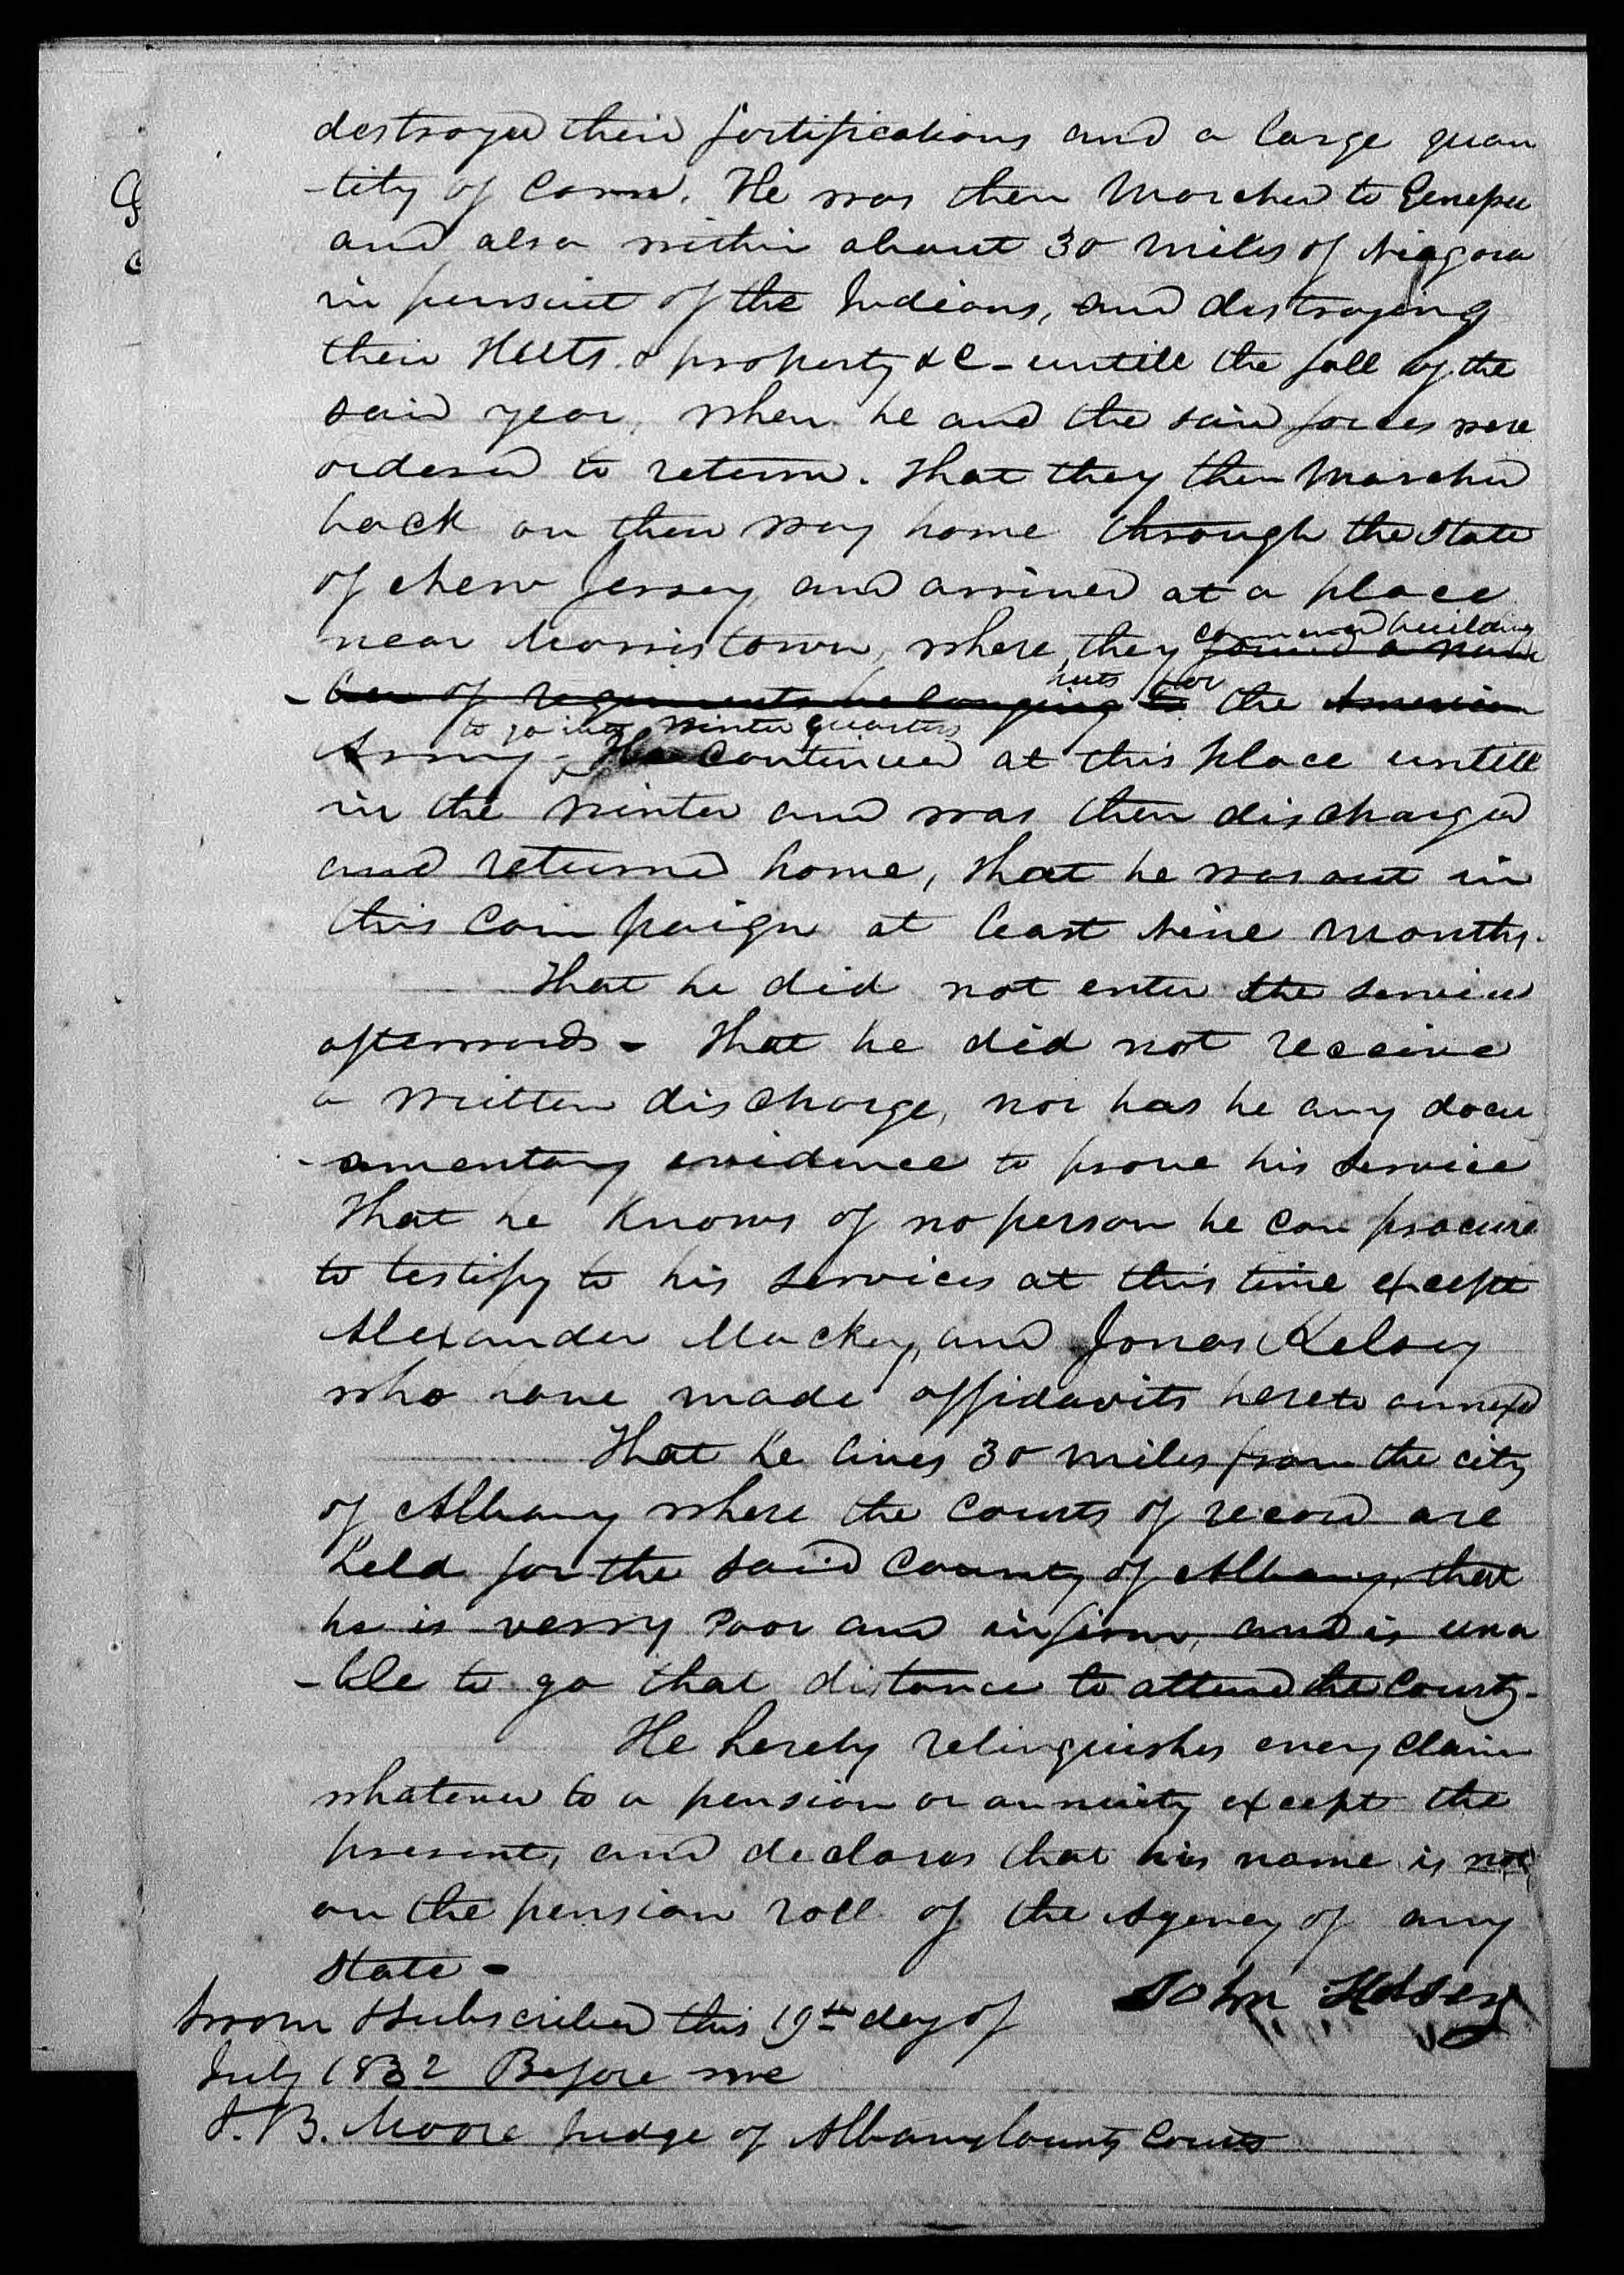 destroyed their fortifications and a large quan
-tity of Corn. He was then Marched to Genesee
and also within about 30 Miles of Niagara
in pursuit of the Indians, and destroying
their Hutts & property &C - untill the fall of the
said year, when he and the said forces were
ordered to return. That they then Marched
back on their way home through the State
of New Jersey and arrived at a place
near Morristown, where they found a num
commenced building
-ber of regiments belonging to the American
huts for
Army, He continued at this place untill
to go into winter quarters
in the winter and was then discharged
and returned home, that he was out in
this Cam paign at least Nine Months.
That he did not enter the service
afterwards - That he did not receive
a written discharge, nor has he any docu
-amentary evidence to prove his service
That he Knows of no person he can procure
to testify to his services at this time except
Alexander Mackey, and Jonas Kelsey
who have made affidavits hereto annexed
That he lives 30 miles from the city
of Albany where the Courts of record are
held for the said County of Albany, that
he is verry Poor and infirm, and is una
-ble to go that distance to attend the Courts.
He hereby relinquishes every claim
whatever to a pension or annuity except the
present, and declares that his name is not
on the pension roll of the Agency of any
State -
John Kelsey
Sworn & Subscribed this 19th day of
July 1832 Before me
J. B. Moore Judge of Albany County Courts